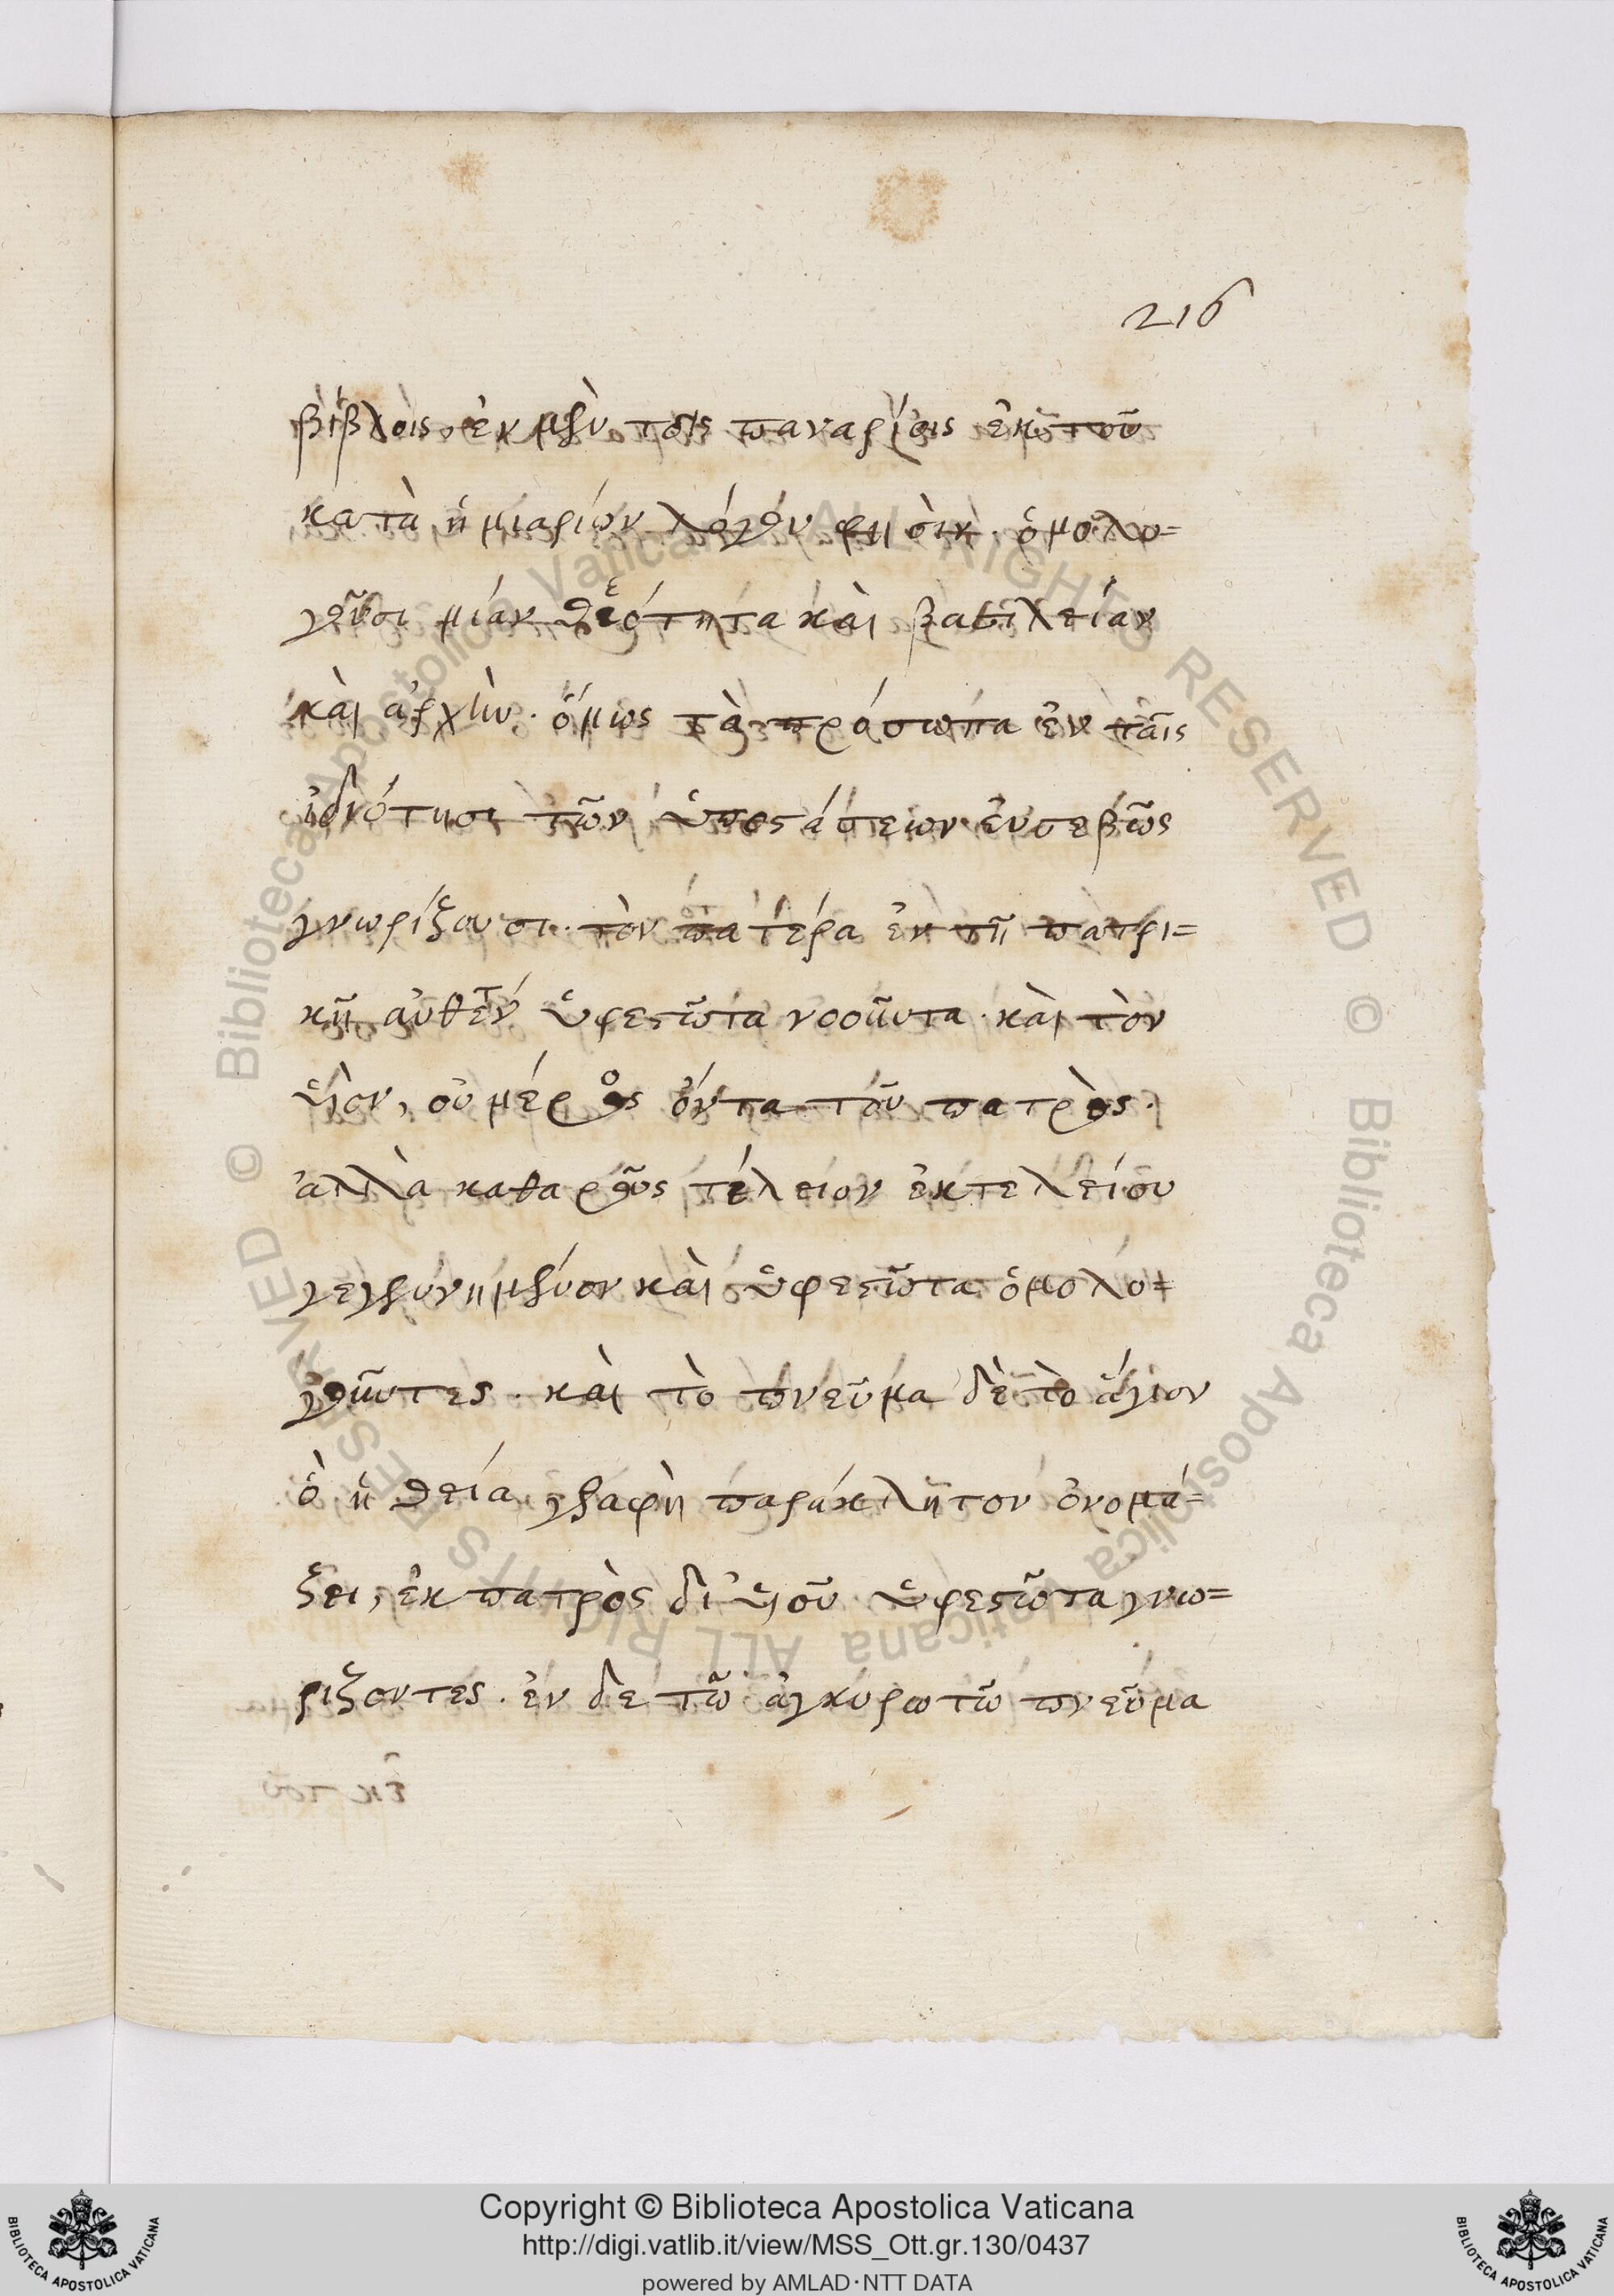 216
βίβλοις, ἐν μὲν τοῖς παναρίοις ἐκ τοῦ
κατὰ ἡμιαρίων λόγου φησὶν. ὁμολο=
γοῦσι μίαν θεότητα καὶ βασιλείαν
καὶ ἀρχὴν. ὅμως τὰ πρόσωπα ἐν ταῖς
ἰδιότησι τῶν ὑποστάσεων εὐσεβῶς
γνωρίζουσι. τὸν πατέρα ἐν τῇ πατρι=
κῇ αὐθεντ ὑφεστῶτα νοοῦντα. καὶ τὸν
υἱὸν, οὐ μέρος ὄντα τοῦ πατρὸς.
ἀλλὰ καθαρῶς τέλειον ἐκ τελείου
γεγεννημένον καὶ ὑφεστῶτα ὁμολο=
γοῦντες. καὶ τὸ πνεῦμα δὲ τὸ ἅγιον
ὃ ἡ θεία γραφὴ παράκλητον ὀνομά=
ζει, ἐκ πατρὸς δι' υἱοῦ ὑφεστῶτα γνω=
ρίζοντες. ἐν δὲ τῷ ἀγκυρωτῷ πνεῦμα
Copyright © Biblioteca Apostolica Vaticana
http://digi.vatlib.it/view/MSS_Ott.gr.130/0437
powered by AMLAD·NTT DATA
BIBLIOTECA APOSTOLICA VATICANA
BIBLIOTECA APOSTOLICA VATICANA